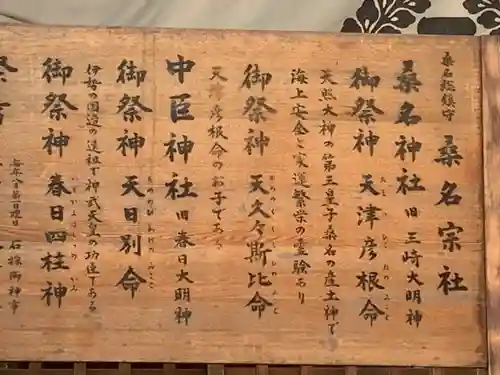 桑名総鎮守 桑名宗社
桑名神社 旧 三崎大明神
御祭神 天津彦根命
天照大神の第三皇子桑名の産土神で
海上安全と家運繁栄の霊験あり
御祭神 天久々斯比命
天津彦根命のお子である
中臣神社 旧 春日大明神
御祭神 天日別命
伊勢の国造の遠祖で神武天皇の功達である
御祭神 春日四柱神
石採御神事